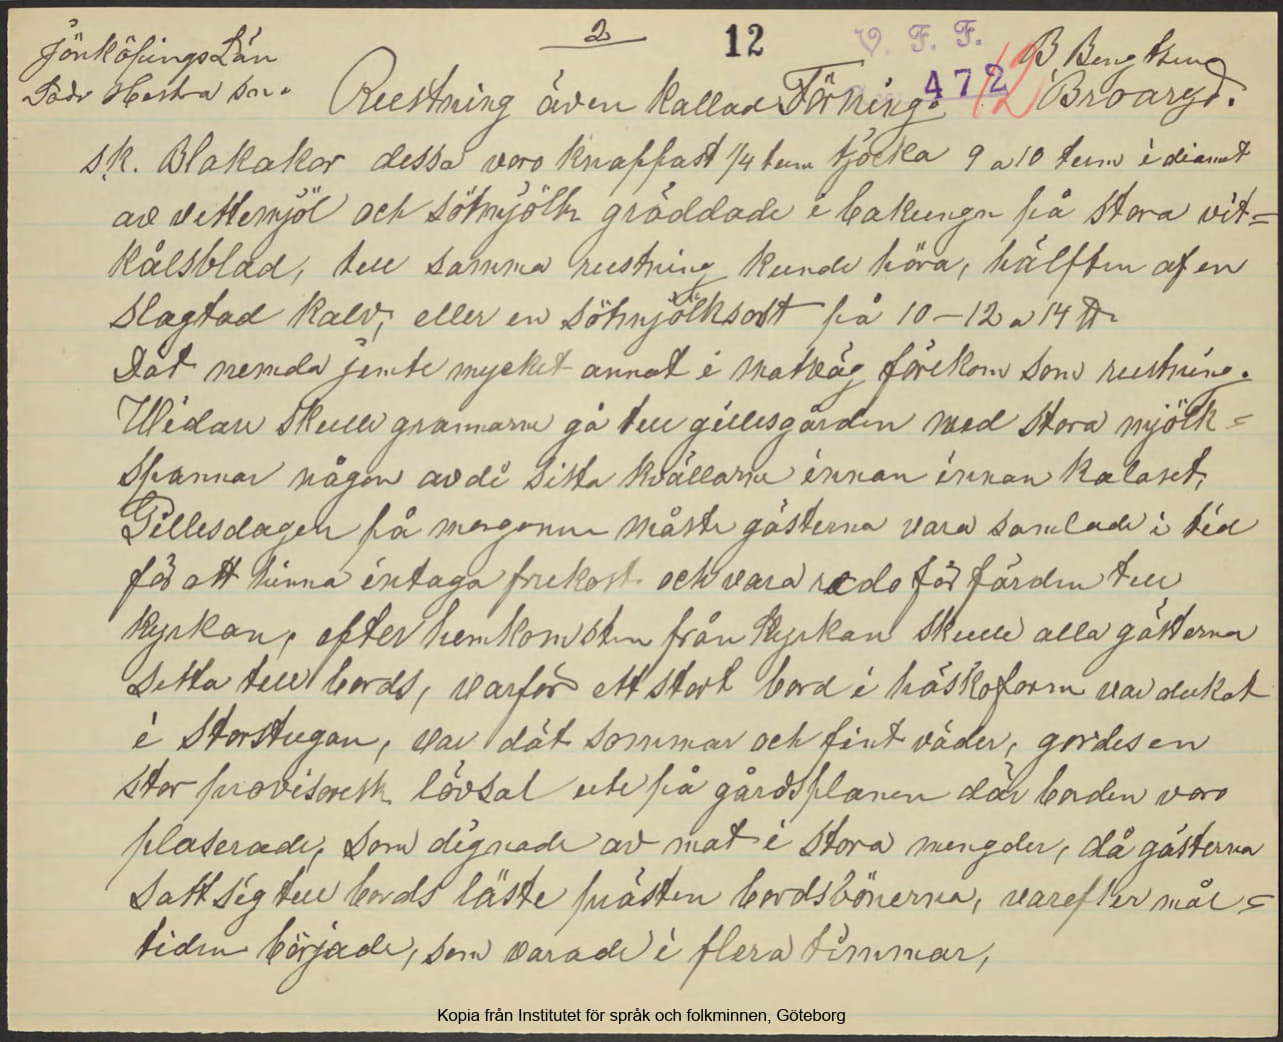 2
12
V. F. F.
472
12
Jönköpings Län
Södr Hestra sn.
B Bengtsson
Broaryd.
Rustning även kallad Förning.
s.k. Blakakor dessa voro knappast 1/4 tum tjocka 9 a 10 tum i diamet
av vettemjöl och sötmjölk gräddade i bakungn på stora vit=
kålsblad, till samma rustning kunde höra, hälften af en
slagtad kalv, eller en sötmjölksost på 10–12 a 14 ℔
Dät nemda jemte mycket annat i matväg förekom som rustning.
Widare skulle grannarne gå till gillesgården med stora mjölk=
spannar någon av di sista kvällarne innan innan kalaset,
Gillesdagen på morgonen måste gästerna vara samlade i tid
för att hinna intaga frukost och vara redo för färden till
kyrkan, efter hemkomsten från kyrkan skulle alla gästerna
sitta till bords, varför ett stort bord i häskoform var dukat
i storstugan, var dät sommar och fint väder, gordes en
stor provisoresk lövsal ute på gårdsplanen där borden voro
plaserade, som dignade av mat i stora mengder, då gästerna
satt sig till bords läste prästen bordsbönerna, varefter mål=
tiden började, som varade i flera timmar,
Kopia från Institutet för språk och folkminnen, Göteborg